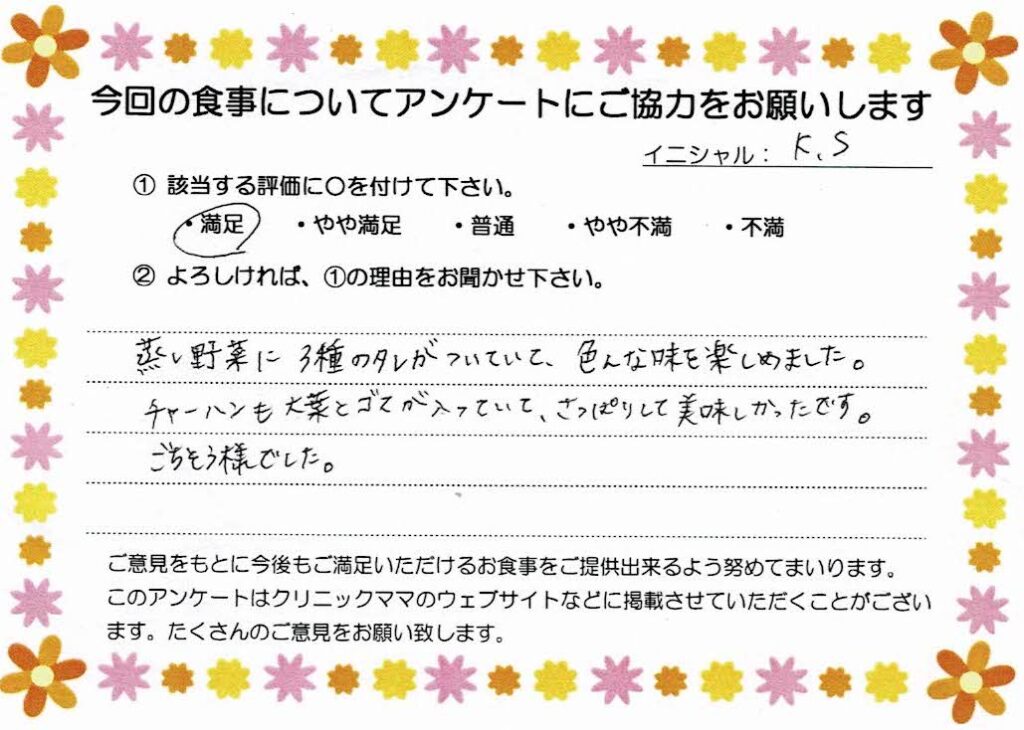 今回の食事についてアンケートにご協力をお願いします
イニシャル： K、S
① 該当する評価に〇を付けて下さい。
・満足 ・やや満足 ・普通 ・やや不満 ・不満
② よろしければ、①の理由をお聞かせ下さい。
蒸し野菜に3種のタレがついていて、色んな味を楽しめました。
チャーハンも大葉とゴマが入っていて、さっぱりして美味しかったです。
ごちそう様でした。
ご意見をもとに今後もご満足いただけるお食事をご提供出来るよう努めてまいります。
このアンケートはクリニックママのウェブサイトなどに掲載させていただくことがござい
ます。たくさんのご意見をお願い致します。